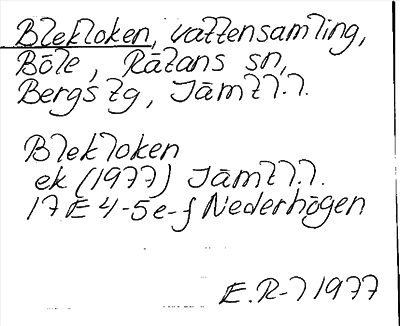 Blekloken, vattensamling,
Böle, Rätans sn,
Bergs tg, Jämtl.l.
Blekloken
ek (1977) Jämtl.l.
17E 4-5 e-f Nederhögen
E.R-l 1977